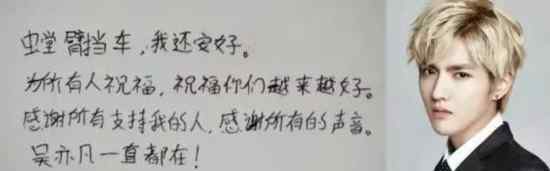 螳臂挡车，我还安好。
为所有人祝福，祝福你们越来越好。
感谢所有支持我的人，感谢所有的声音。
吴亦凡一直都在！